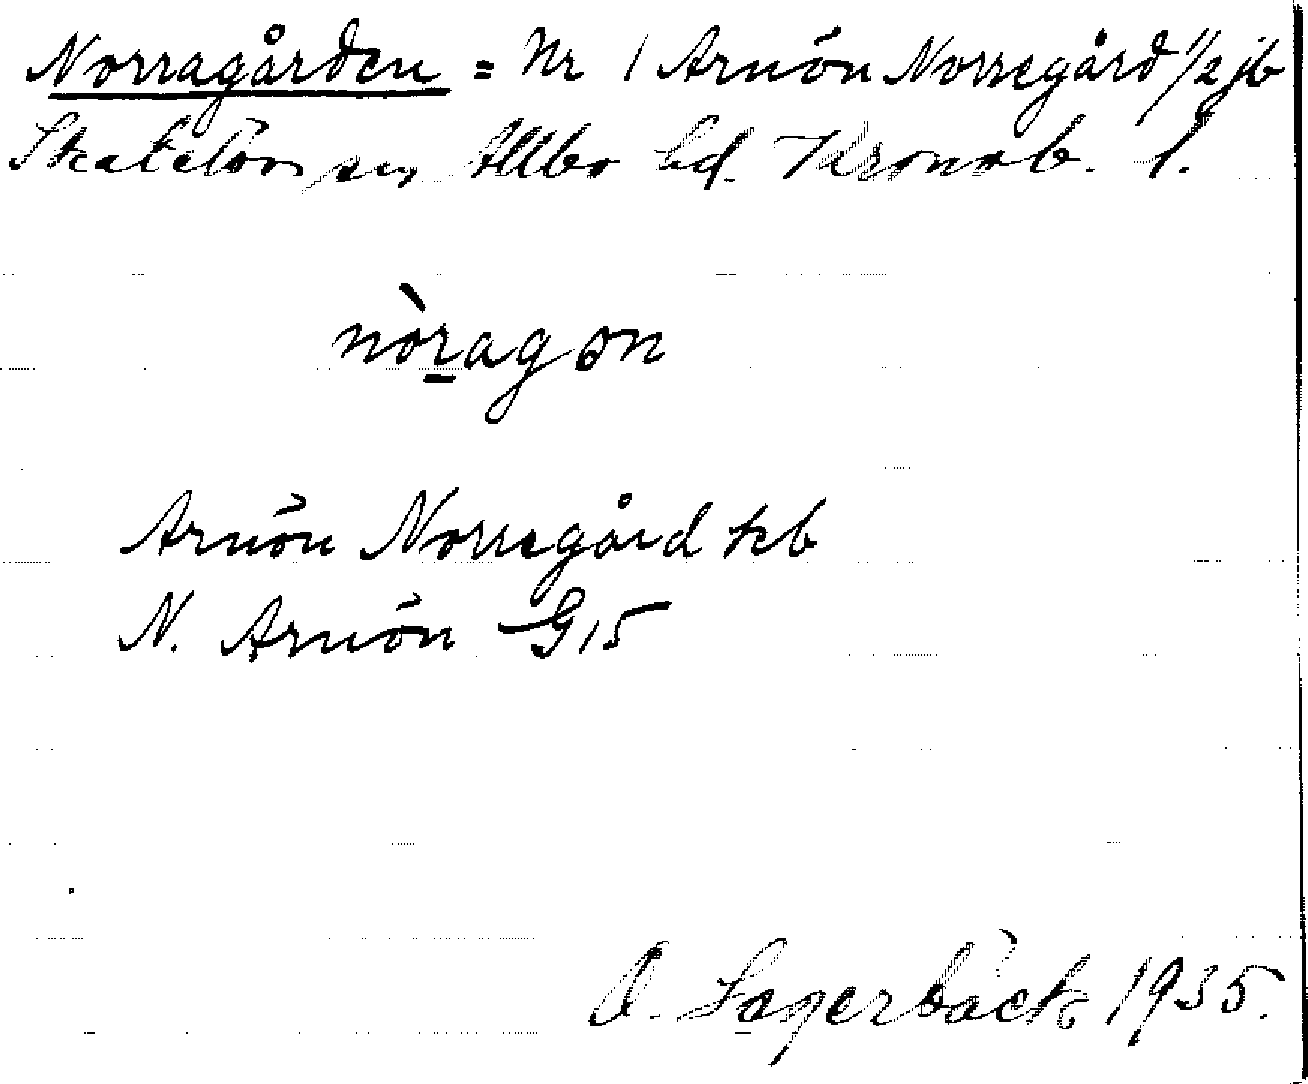 Norragården = Nr 1 Arnön Norregård 1/2 jb
Skatelövs sn, Allbo hd. Kronob. l.
nòragon
Arnön Norregård kb
N. Arnön G15
O. Lagerbäck 1935.